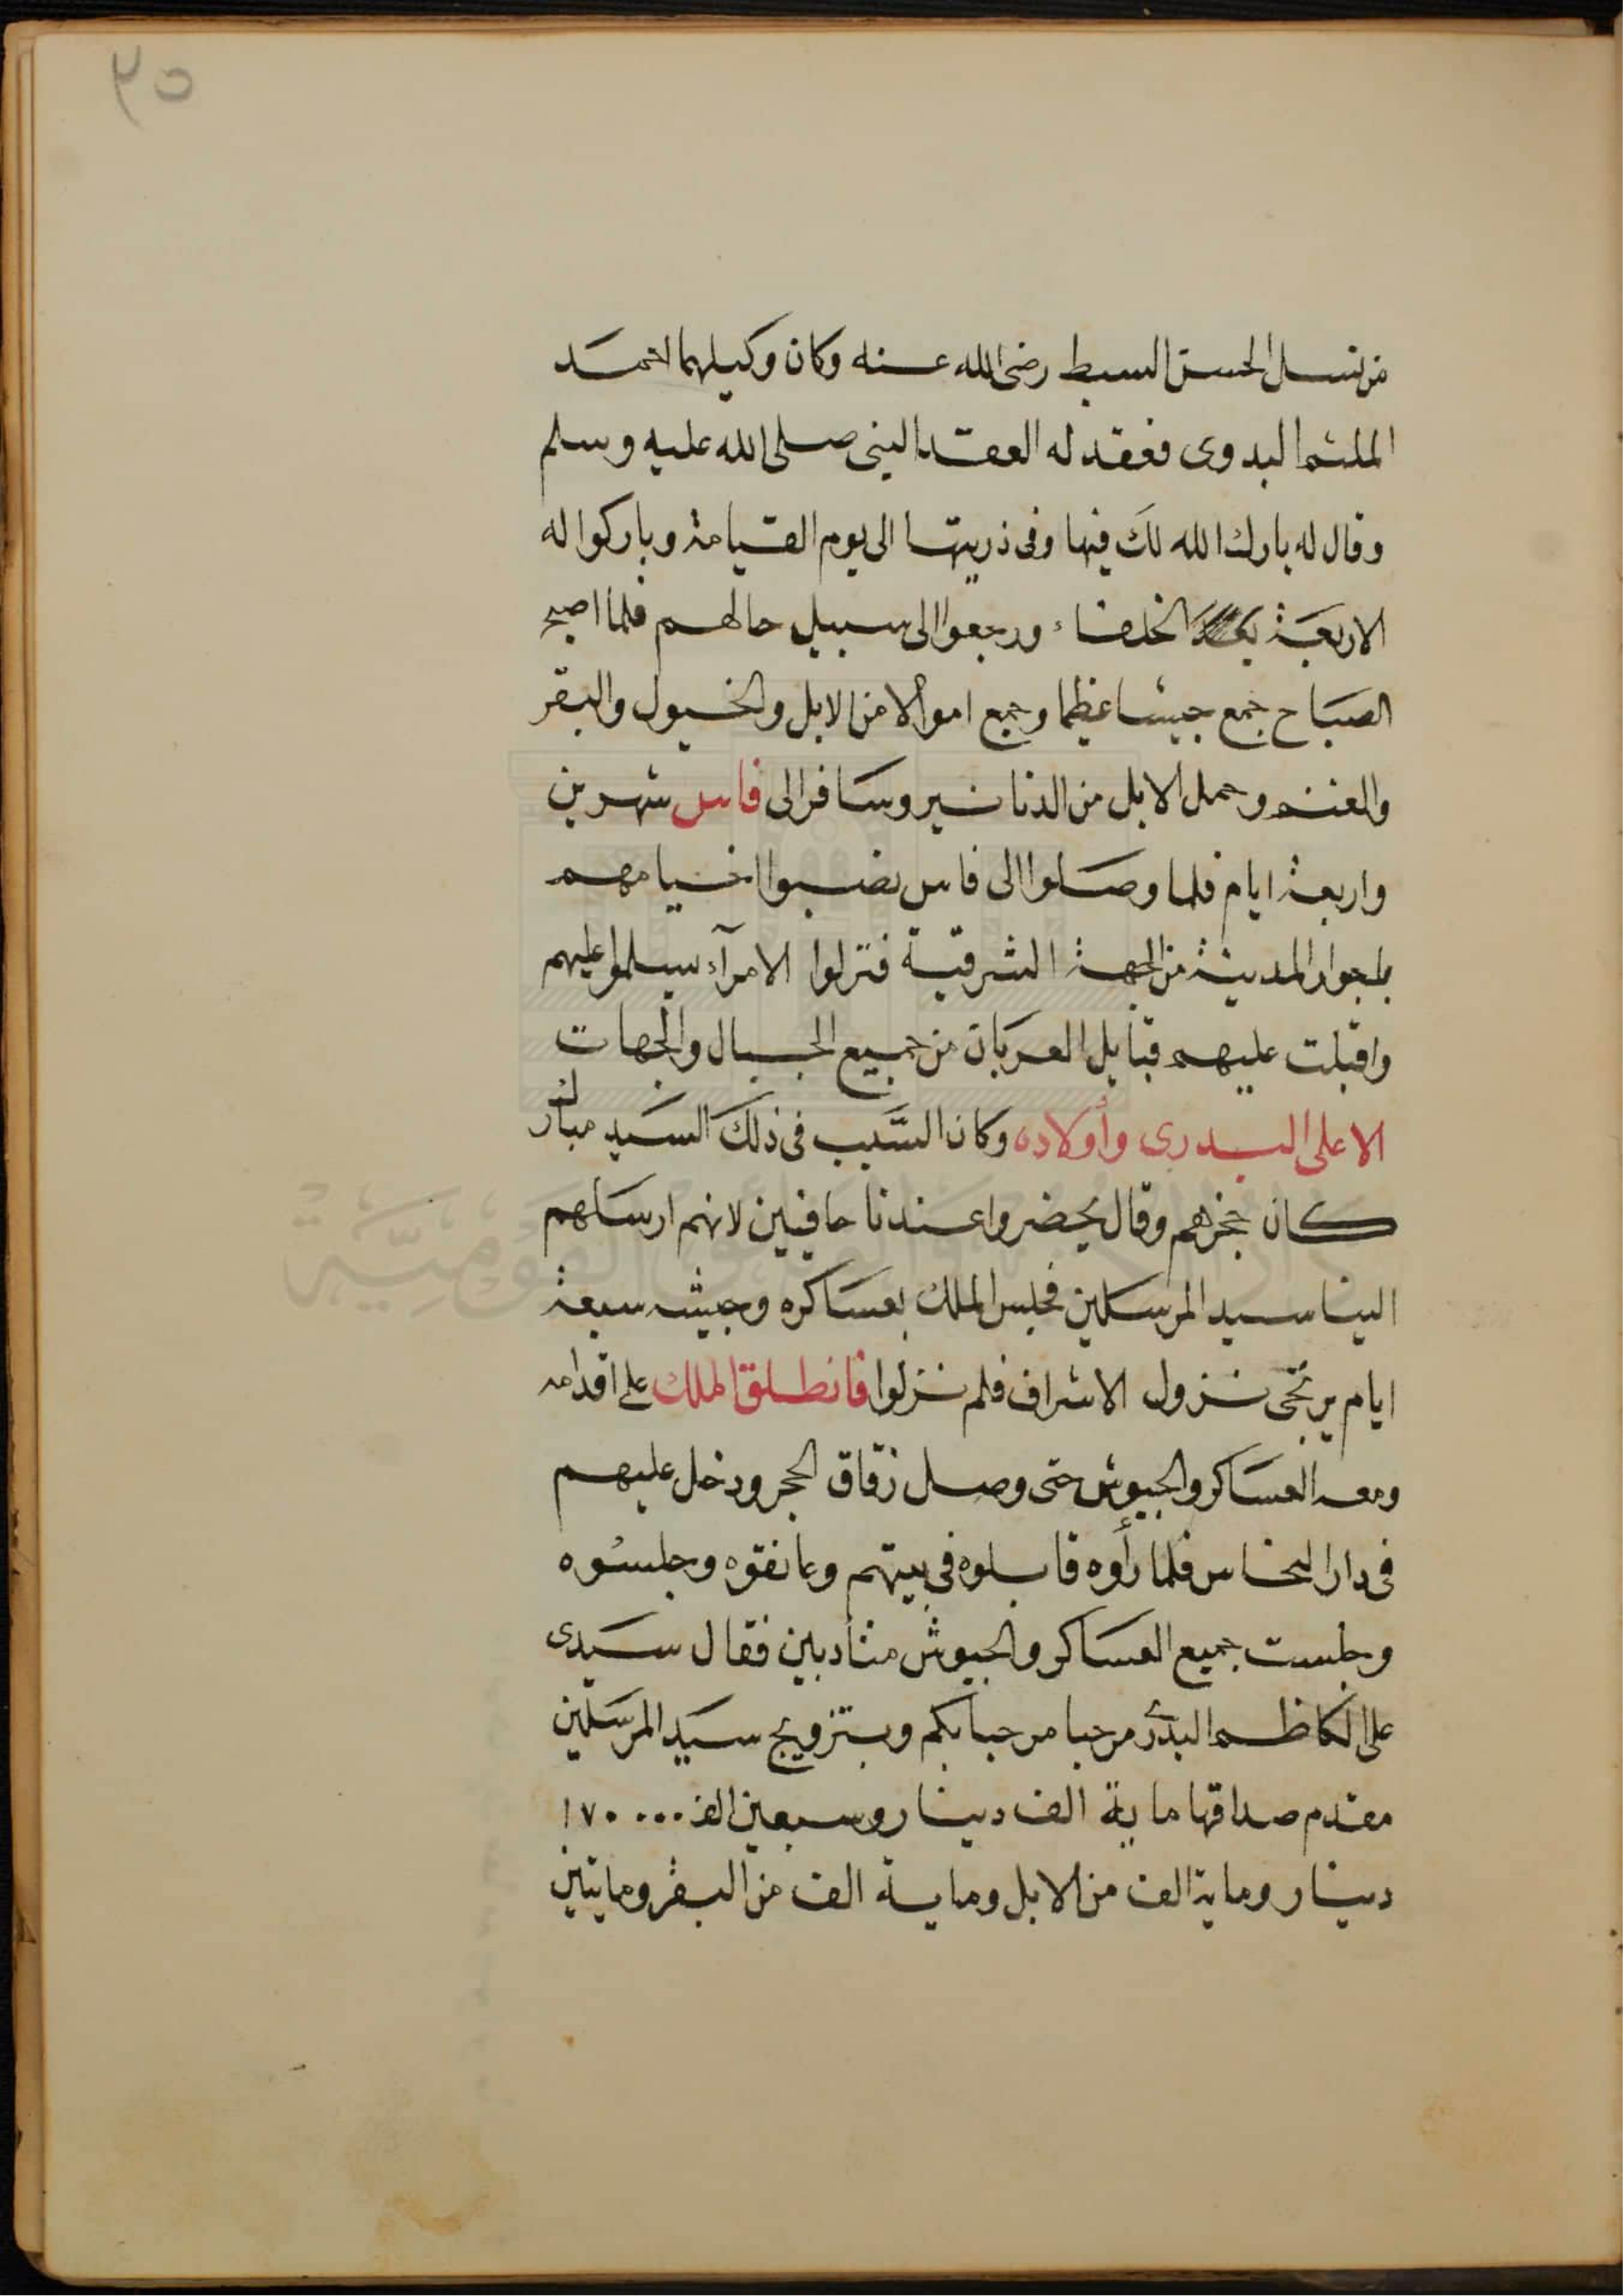 ٢٥
من نسل الحسن السبط رضى الله عنه وكان وكيلهما احمد
الملثم البدوى فعقد له العقد النبى صلى الله عليه وسلم
وقال له بارك الله لك فيها وفى ذريتها الى يوم القيامة وباركوا له
الاربعة الخلفاء ورجعوا الى سبيل حالهم فلما اصبح
الصباح جمع جيشا عظيما وجمع اموالا من الابل والخيول والبقر
والغنم وحمل الابل من الدنانير وسافر الى فاس شهرين
واربعة ايام فلما وصلوا الى فاس نصبوا خيامهم
بجوار المدينة من الجهة الشرقية فنزلوا الامرآء سلموا عليهم
واقبلت عليهم قبايل العربان من جميع الجبال والجهات
الا على البدرى وأولاده وكان السبب فى ذلك السيد مبارك
كان حجزهم وقال يحضروا عندنا حافيين لانهم ارسلهم
الينا سيد المرسلين فجلس الملك بعساكره وجيشه سبعة
ايام يرتجى نزول الاشراف فلم نزلوا فانطلق الملك على اقدامه
ومعه العساكر والجيوش حتى وصل زقاق الحجر ودخل عليهم
فى دار النحاس فلما رأوه قابلوه فى بيتهم وعانقوه وجلسوه
وجلست جميع العساكر والجيوش متأدبين فقال سيدى
على الكاظم البدرى مرحبا مرحبا بكم وبتزويج سيد المرسلين
مقدم صداقها ماية الف دينار وسبعين الف ١٧٠٠٠٠
دينار وماية الف من الابل وماية الف من البقر ومايتين
دار الكتب والوثائق القومية